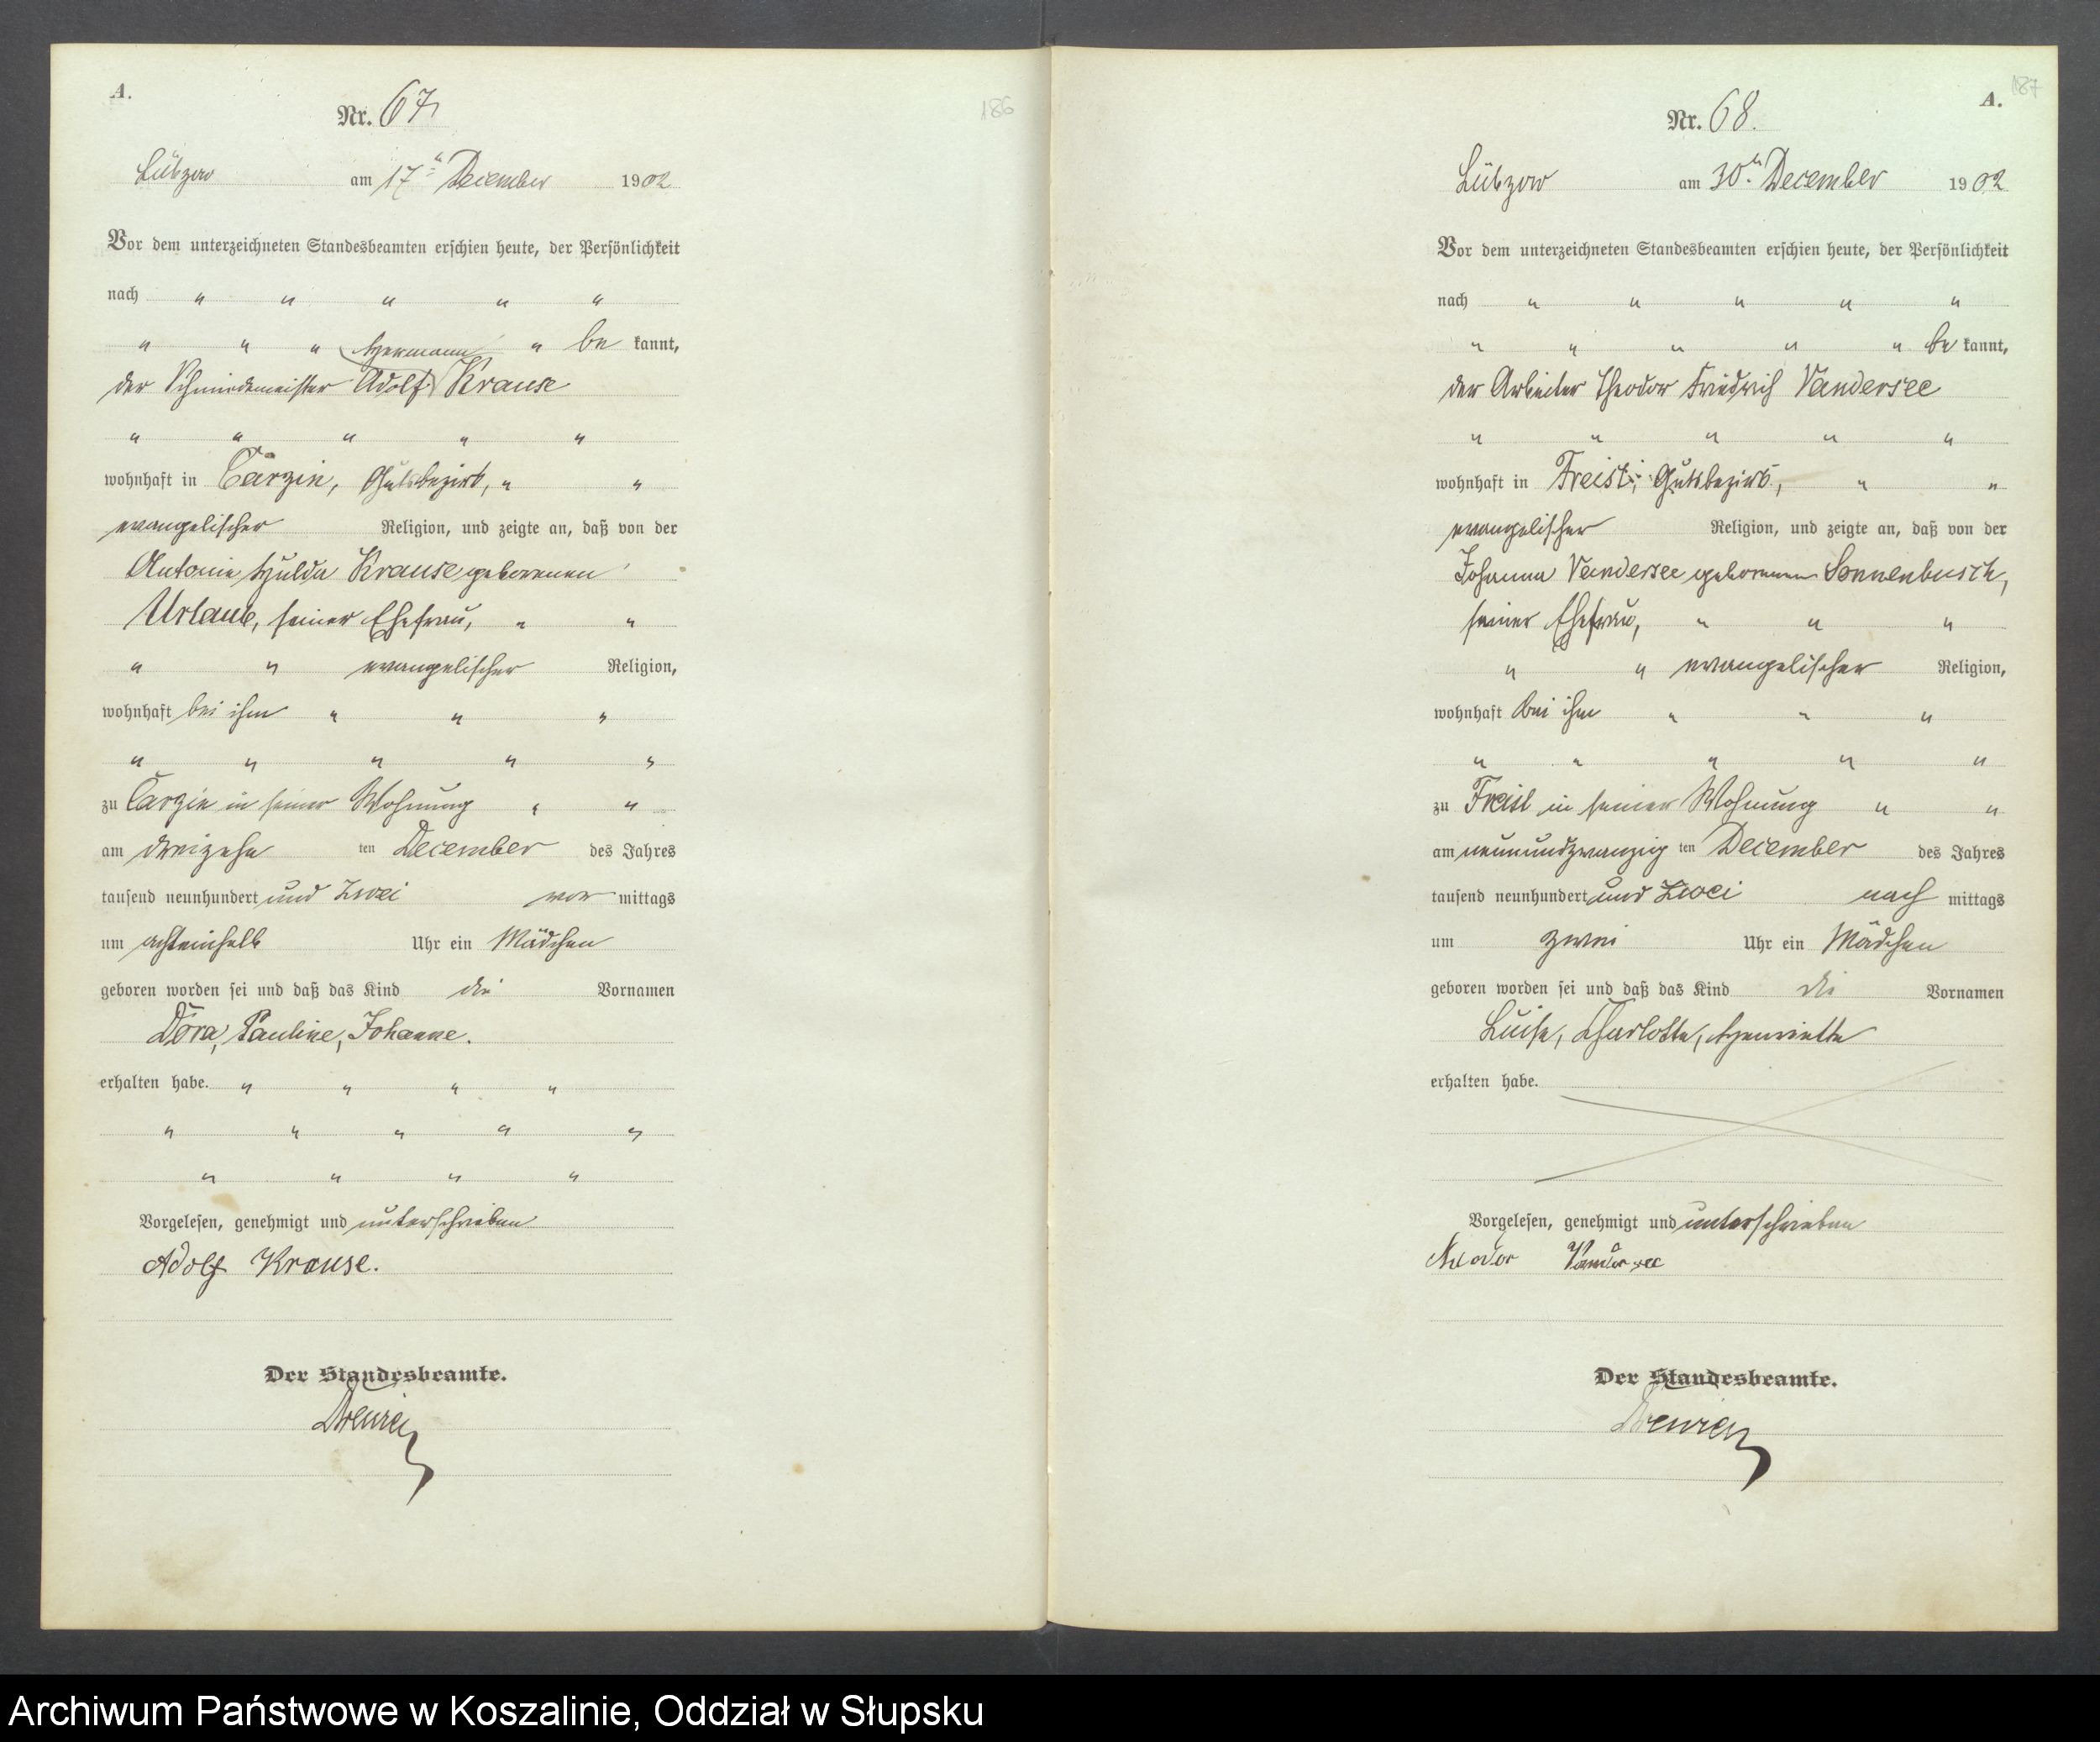 A.
Nr. 67
Lübzow am 17ten December 1902
Vor dem unterzeichneten Standesbeamten erschien heute, der Persönlichkeit
nach " " " " "
" " " Hermann " be kannt,
der Schmiedemeister Adolf Krause
" " " " "
wohnhaft in Carzin, Gutsbezirk, " "
evangelischer Religion, und zeigte an, daß von der
Antonie Hulda Krause geborenen
Urlaub, seiner Ehefrau, " "
" " evangelischer Religion,
wohnhaft bei ihm " " "
" " " " "
zu Carzin in seiner Wohnung " "
am dreizehn ten December des Jahres
tausend neunhundert und zwei vor mittags
um achteinhalb Uhr ein Mädchen
geboren worden sei und daß das Kind die Vornamen
Dora, Pauline, Johanne.
erhalten habe. " " " "
" " " " "
" " " "
Vorgelesen, genehmigt und unterschrieben
Adolf Krause.
Der Standesbeamte.
186
187
A.
Nr. 68.
Lübzow am 30ten December 1902
Vor dem unterzeichneten Standesbeamten erschien heute, der Persönlichkeit
nach " " " " "
" " " " " be kannt,
der Arbeiter Theodor Friedrich Vandersee
" " " " "
wohnhaft in Freist, Gutsbezirk, " "
evangelischer Religion, und zeigte an, daß von der
Johanna Vandersee geborenen Sonnenbusch,
seiner Ehefrau, " " "
" " evangelischer Religion,
wohnhaft bei ihm " " "
" " " " "
zu Freist in seiner Wohnung " "
am neunundzwanzig ten December des Jahres
tausend neunhundert und zwei nach mittags
um zwei Uhr ein Mädchen
geboren worden sei und daß das Kind die Vornamen
Luise, Charlotte, Henriette
erhalten habe.
Vorgelesen, genehmigt und unterschrieben
Theodor Vandersee
Der Standesbeamte.
Archiwum Państwowe w Koszalinie, Oddział w Słupsku